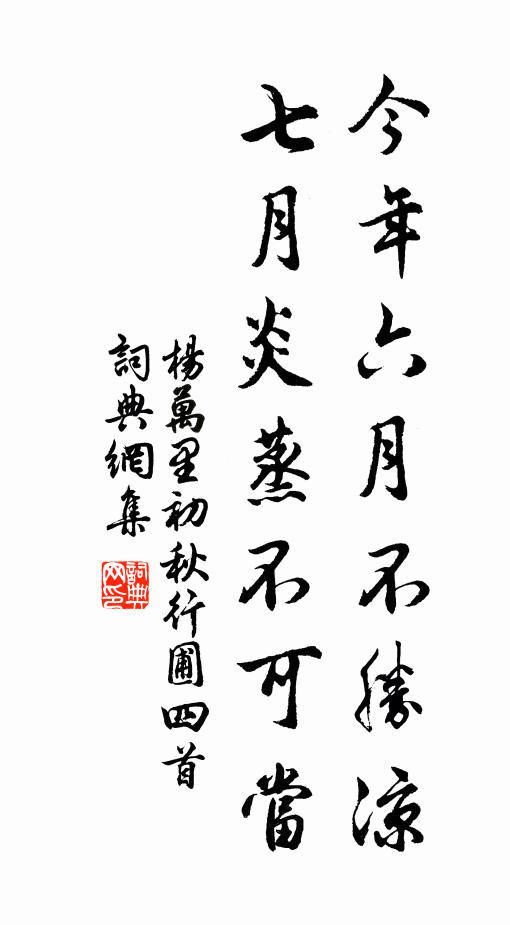 今年六月不勝涼
七月炎蒸不可當
楊萬里初秋行圃四首
詞典網集
詞典网印